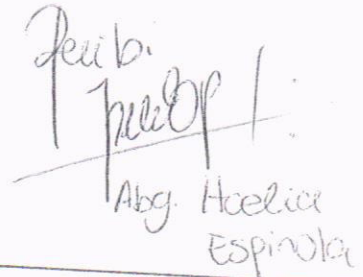 Recibi.
Abg. Hoelia
Espinola